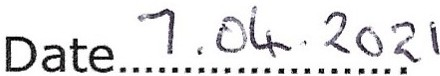 Date 7.04.2021